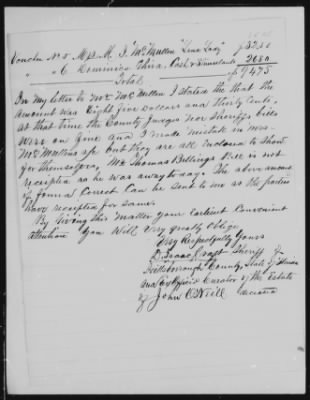 Voucher No 5. Mrs M. J. McMullen "Zinc Lady" $32.50
" " 6 Dominico Ghira, Cash & 20.50
Total $94.75
In my letter to Mr McMullen I stated the that the
amount was Eighty five Dollars and thirty Cents,
at that time the County Judges nor Sheriffs bills
were on fine and I made mistake in mrs.
McMullins a/c but they are all inclosed to Show
for themselves, Mr Thomas Billings Bill is not
receipted as he was away to day. The above amount
if found Correct Can be sent to me as the parties
have receipted for same.
By Giving this Matter your Earliest Convenient
attention you Will Very greatly Oblige
Very Respectfully Yours
D. Isaac Craft Sheriff of
Hillsborough County, State of Florida
and Ex Officio Curator of the Estate
of John O'Neill deceased